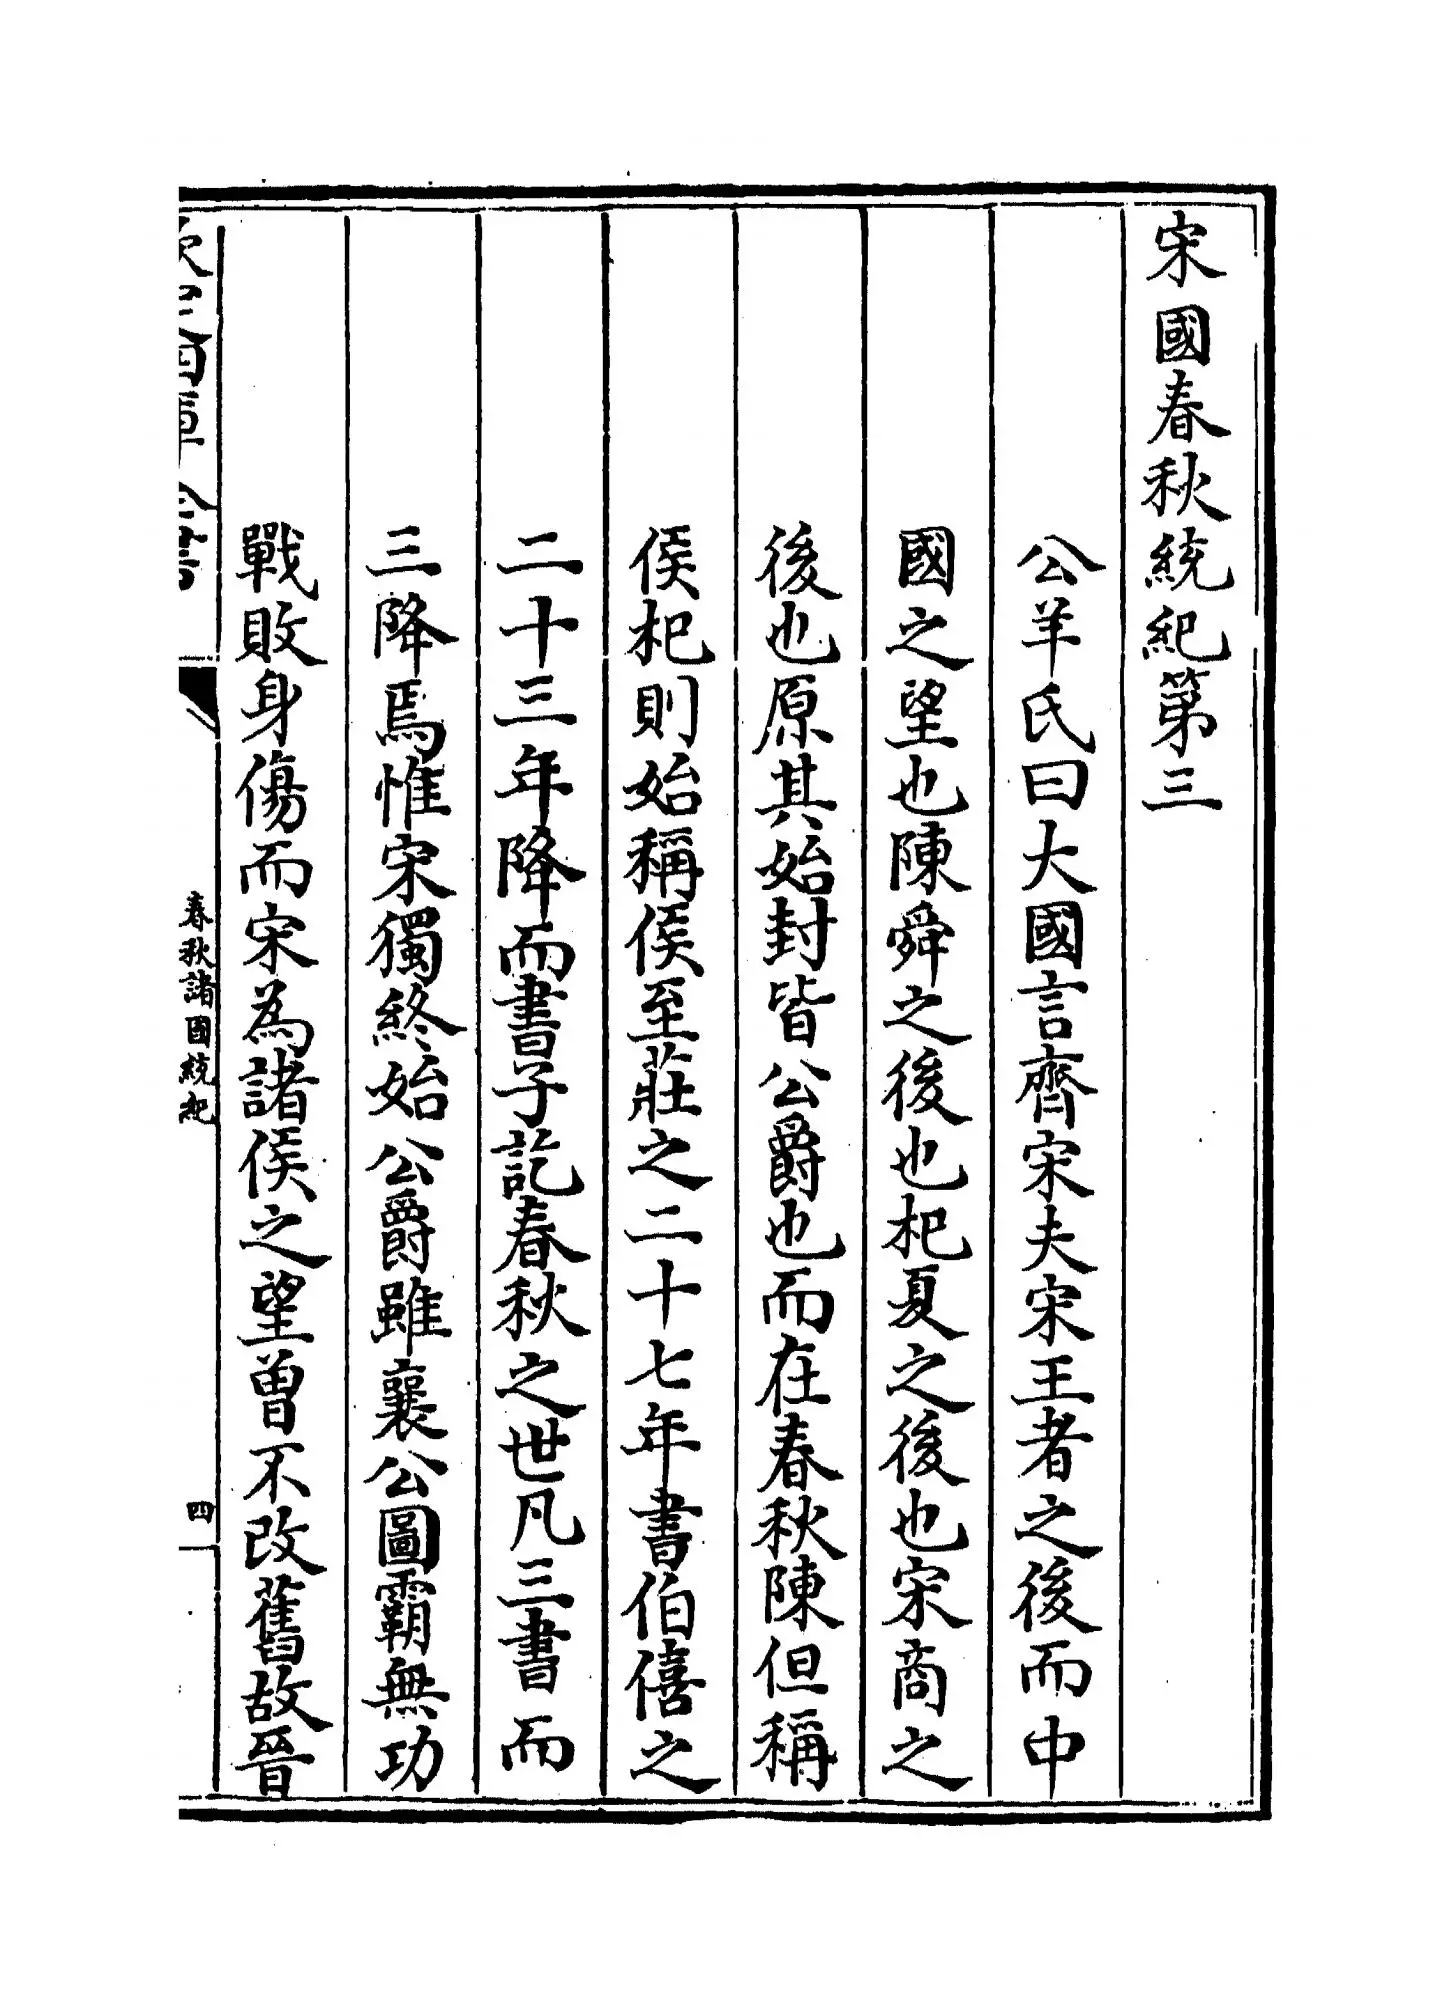 宋國春秋統紀第三
公羊氏曰大國言齊宋夫宋王者之後而中
國之望也陳舜之後也杞夏之後也宋商之
後也原其始封皆公爵也而在春秋陳但稱
侯杞則始稱侯至莊之二十七年書伯僖之
二十三年降而書子訖春秋之世凡三書而
三降焉惟宋獨終始公爵雖襄公圖霸無功
戰敗身傷而宋為諸侯之望曾不改舊故晉
欽定四庫全書
春秋諸國統紀
四